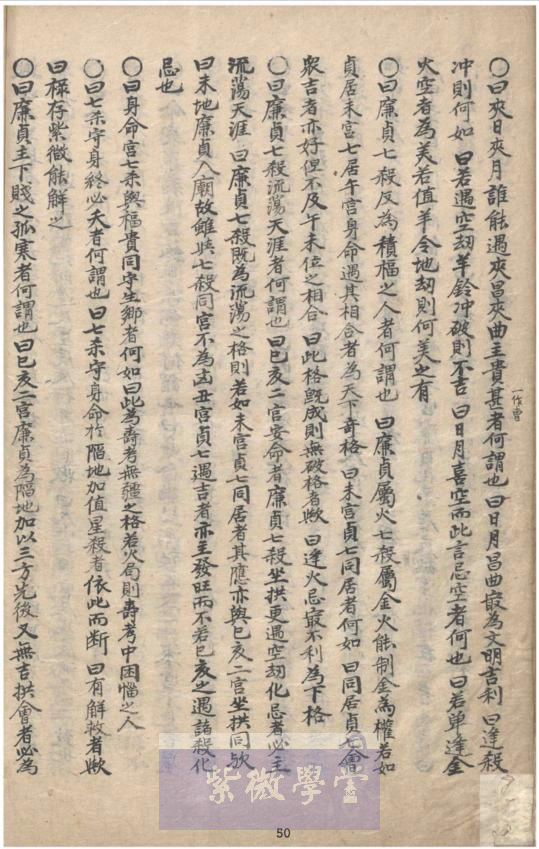 〇曰夾日夾月誰能遇夾昌夾曲主貴甚者何謂也曰日月昌曲最為文明吉利曰逢殺
一作會
冲則何如曰若遇空刼羊鈴冲破則不吉曰日月喜空而此言忌空者何也曰若单逢金
火空者為美若值羊令地刼則何美之有
〇曰廉貞七殺反為積福之人者何謂也曰廉貞屬火七殺屬金火能制金為權若如
貞居未宮七居午宮身命遇其相合者為天下奇格曰未宮貞七同居者何如曰同居貞七會
衆吉者亦好但不及午未位之相合曰此格既成則無破格者欤曰逢火忌最不利為下格
〇曰廉貞七殺流蕩天涯者何謂也曰巳亥二宮安命者廉貞七殺坐拱更遇空刼化忌者必主
流蕩天涯曰廉貞七殺既為流蕩之格則若如未宮貞七同居者其應亦與巳亥二宮坐拱同欤
曰未地廉貞入廟故雖與七殺同宮不為凶丑宮貞七遇吉者亦主發旺而不若巳亥之遇諸殺化
忌也
〇曰身命宮七杀與福貴同守生鄉者何如曰此為壽考無疆之格若火局則壽考中困惱之人
〇曰七杀守身終必夭者何謂也曰七杀守身命於陷地加值星殺者依此而断曰有解救者欤
曰祿存紫微能解之
〇曰廉貞主下賤之孤寒者何謂也曰巳亥二宮廉貞為陷地加以三方先後又無吉拱會者必為
紫微學堂
50